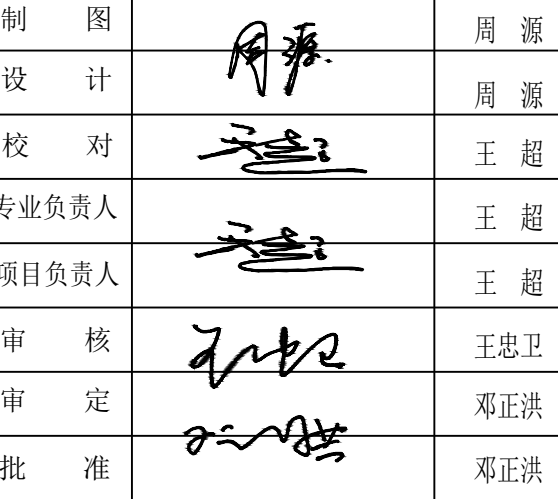 制 图 周 源
周源
设 计 周 源
校 对 王 超
王超
专业负责人 王 超
项目负责人 王 超
王超
审 核 王忠卫
王忠卫
审 定 邓正洪
邓正洪
批 准 邓正洪